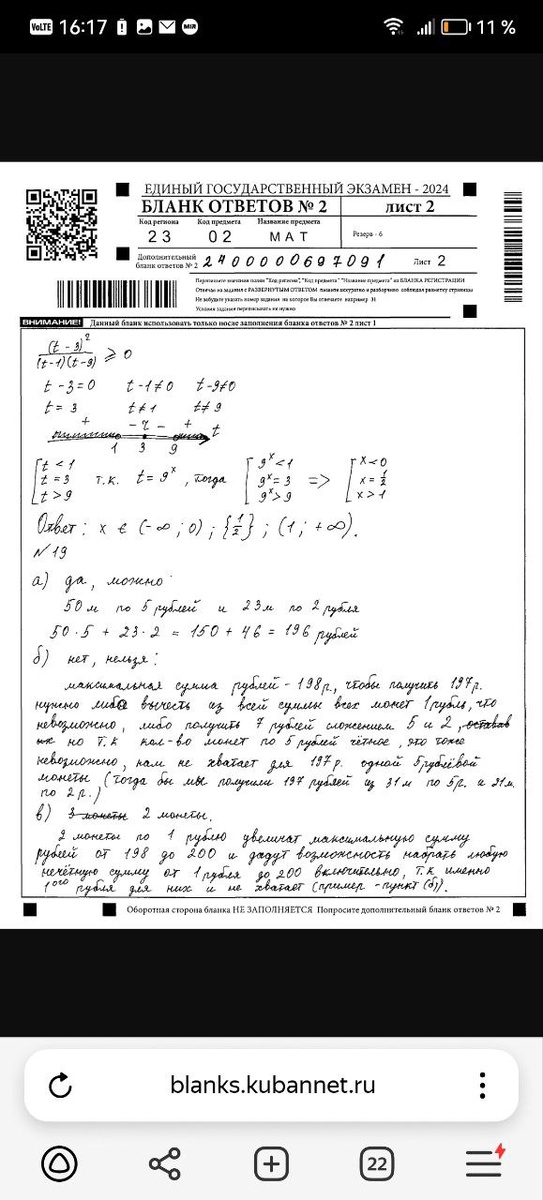 VoLTE 16:17 MIR 11 %
ЕДИНЫЙ ГОСУДАРСТВЕННЫЙ ЭКЗАМЕН - 2024
БЛАНК ОТВЕТОВ № 2 лист 2
Код региона Код предмета Название предмета
23 02 МАТ Резерв - 6
Дополнительный бланк ответов № 2 2400000697091 Лист 2
Перепишите значения полей "Код региона", "Код предмета" "Название предмета" из БЛАНКА РЕГИСТРАЦИИ
Отвечая на задания с РАЗВЕРНУТЫМ ОТВЕТОМ пишите аккуратно и разборчиво соблюдая разметку страницы
Не забудьте указать номер задания на которое Вы отвечаете например 31
Условия задания переписывать не нужно
ВНИМАНИЕ! Данный бланк использовать только после заполнения бланка ответов № 2 лист 1
(t - 3)² / (t-1)(t-9) ⩾ 0
t - 3 = 0 t - 1 ≠ 0 t - 9 ≠ 0
t = 3 t ≠ 1 t ≠ 9
+ - 2 - + t
1 3 9
[ t < 1 t = 3 t > 9 т.к. t = 9ˣ, тогда [ 9ˣ < 1 9ˣ = 3 9ˣ > 9 => [ x < 0 x = 1/2 x > 1
Ответ: x ∈ (-∞; 0); {1/2}; (1; +∞).
№19
а) да, можно:
50 м по 5 рублей и 23 м по 2 рубля
50 · 5 + 23 · 2 = 150 + 46 = 196 рублей
б) нет, нельзя:
максимальная сумма рублей - 198 р., чтобы получить 197 р.
нужно либо вычесть из всей суммы всех монет 1 рубль, что
невозможно, либо получить 7 рублей сложением 5 и 2,
но т.к кол-во монет по 5 рублей чётное, это тоже
невозможно, нам не хватает для 197 р. одной 5 рублёвой
монеты (тогда бы мы получили 197 рублей из 31 м по 5 р. и 21 м.
по 2 р.)
в) 3 монеты 2 монеты.
2 монеты по 1 рублю увеличат максимальную сумму
рублей от 198 до 200 и дадут возможность набрать любую
нечётную сумму от 1 рубля до 200 включительно, т.к именно
1ого рубля для них и не хватает (пример - пункт (б)).
Оборотная сторона бланка НЕ ЗАПОЛНЯЕТСЯ Попросите дополнительный бланк ответов № 2
blanks.kubannet.ru
22